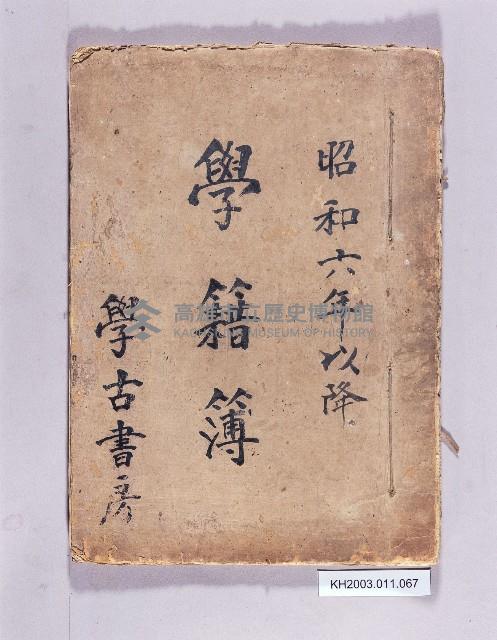 昭和六年以降
學籍簿
學古書房
高雄市立歷史博物館
KAOHSIUNG MUSEUM OF HISTORY
KH2003.011.067